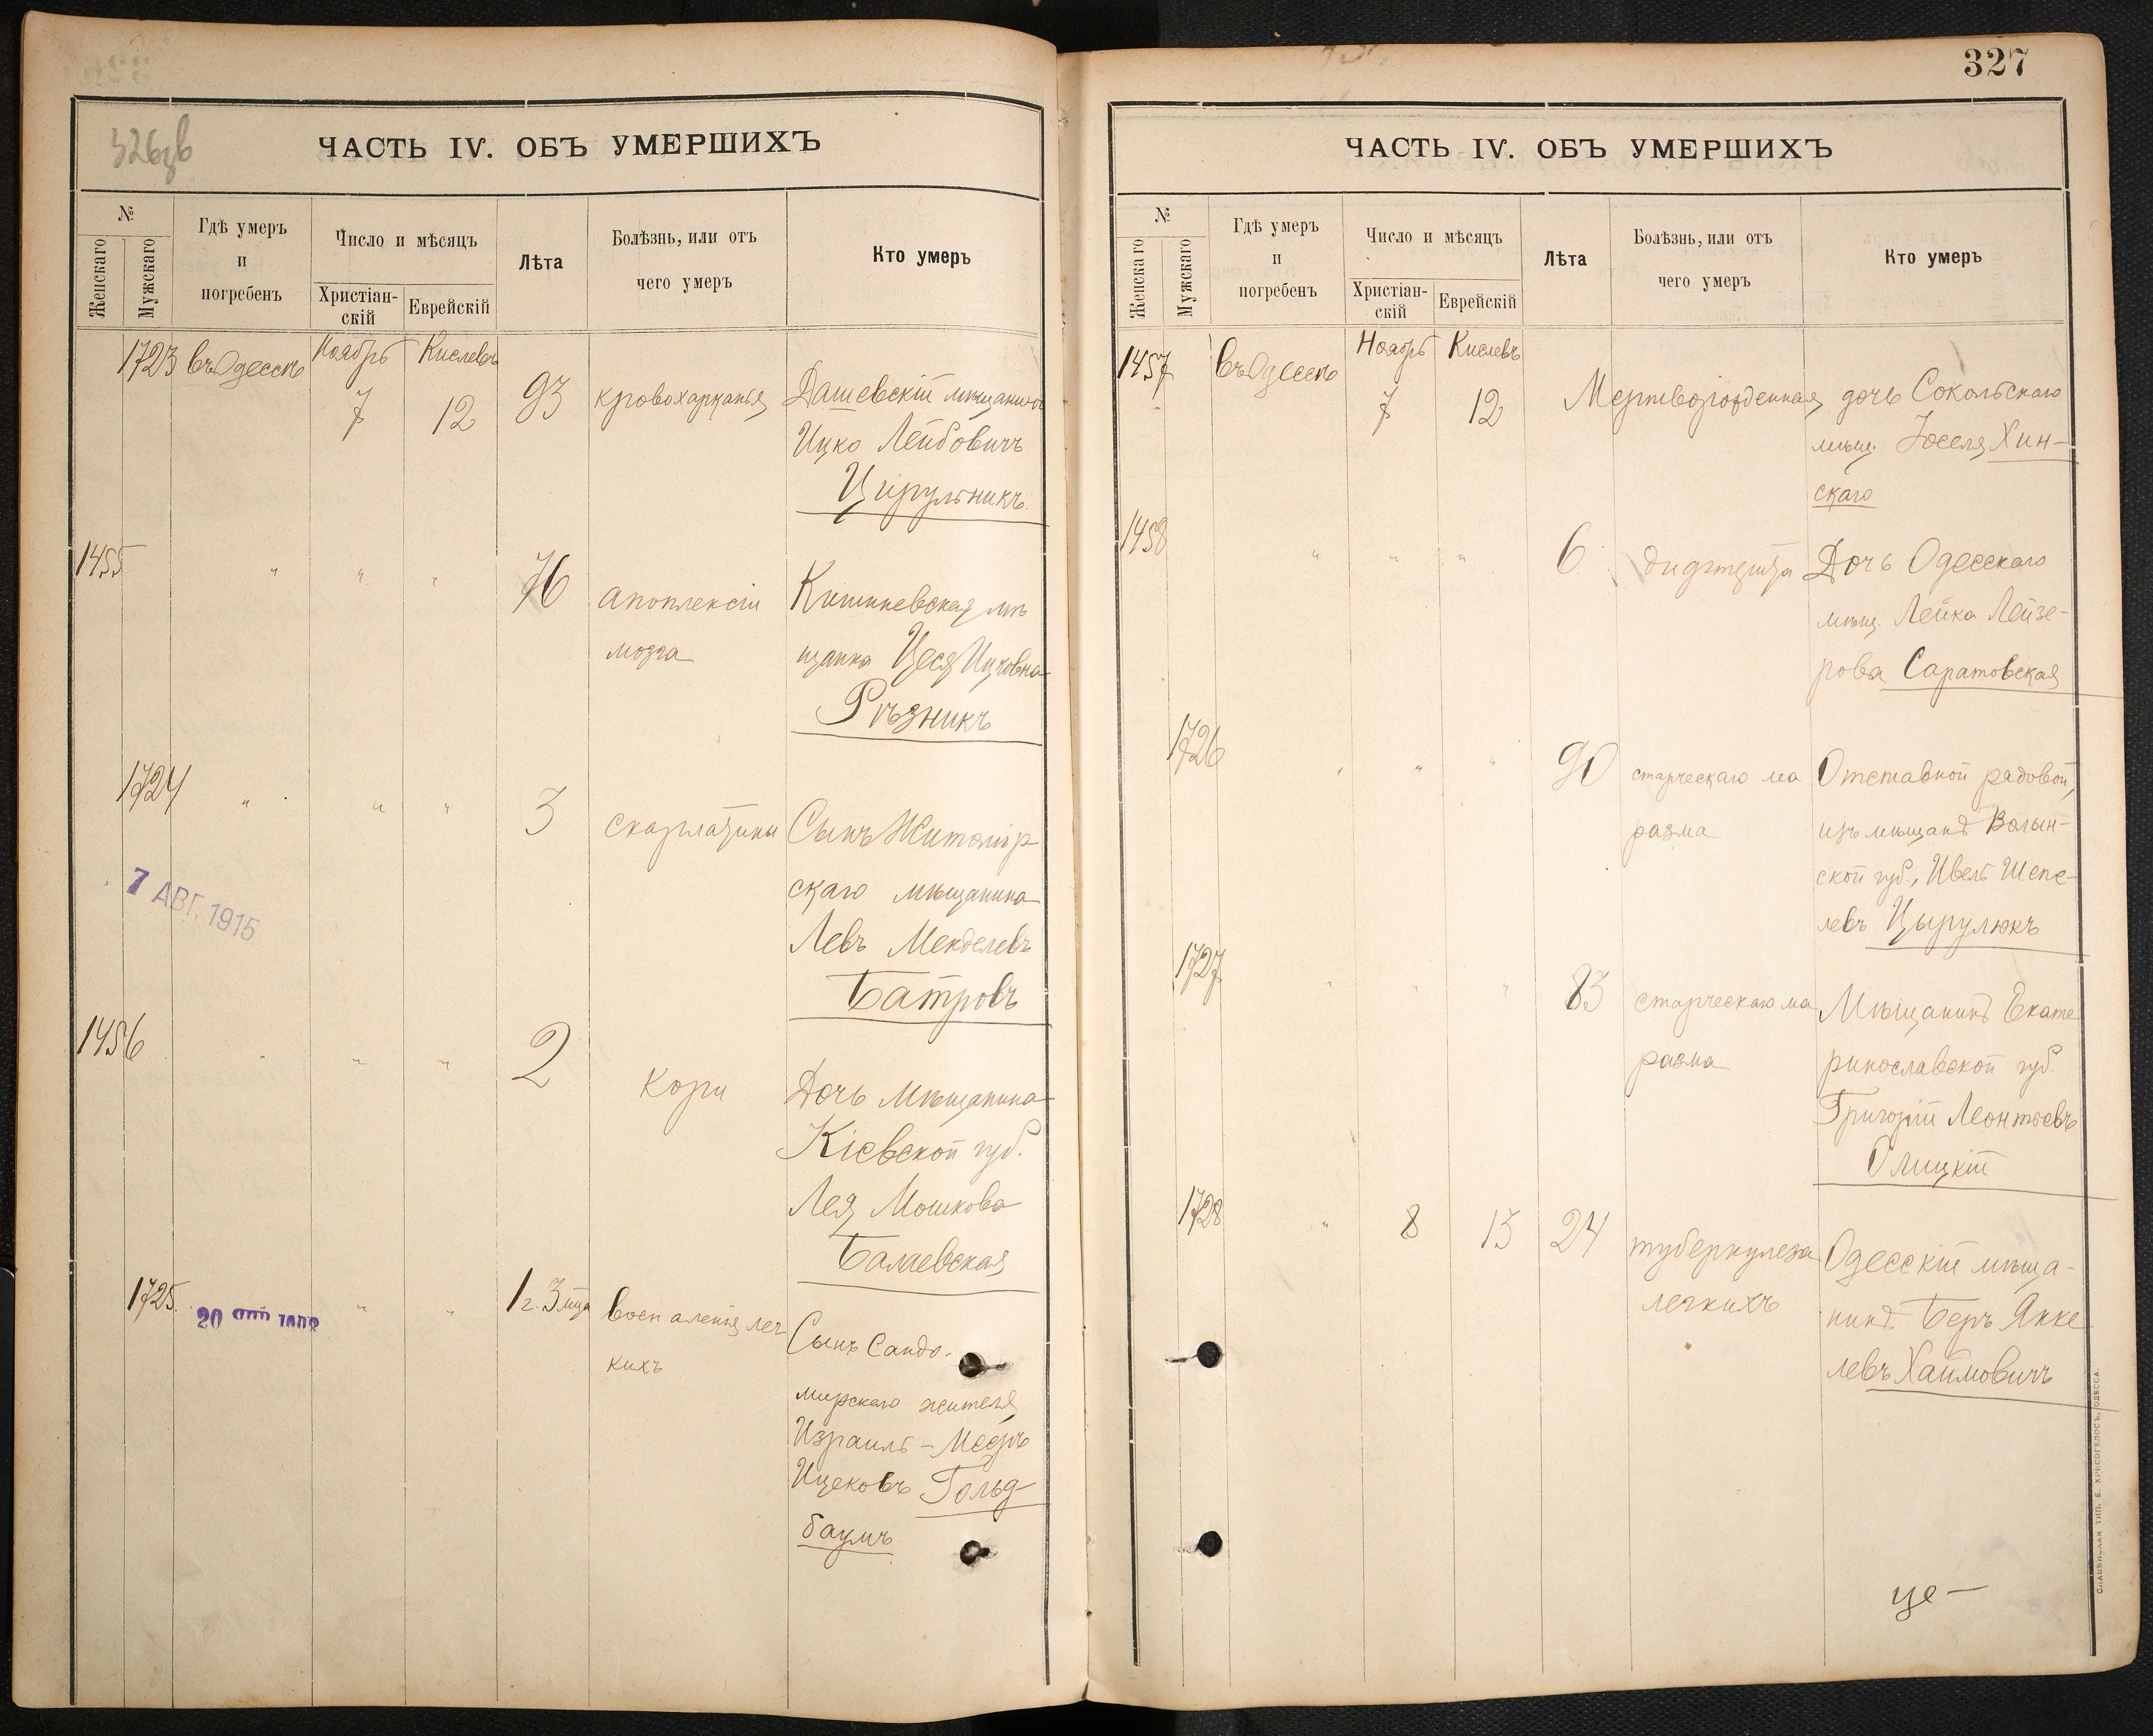 326 об
ЧАСТЬ IV. ОБЪ УМЕРШИХЪ
№
Женскаго
Мужскаго
Гдѣ умеръ
и
погребенъ
Число и мѣсяцъ
Христіан-
скій
Еврейскій
Лѣта
Болѣзнь, или отъ
чего умеръ
Кто умеръ
1723 въ Одессѣ Ноябрь Кислевъ
7 12 93 кровохарканія Дашевскій мѣщанинъ
Ицко Лейбовичъ
Цирульникъ
1455 " " " 76 апоплексіи Кишиневская мѣ
мозга щанка Цеся Ицковна
Рѣзникъ
1724 " " " 3 скарлатины Сынъ Житомір
скаго мѣщанина
Левъ Менделевъ
Батровъ
7 АВГ. 1915
1456 " " " 2 кори Дочь мѣщанина
Кіевской губ.
Лея Мошкова
Балаевская
1725 " " 1 г. 3 мца воспаленія лег
кихъ
Сынъ Сандо-
мирскаго жителя
Израиль-Мееръ
Ицековъ Гольд
баумъ
327
ЧАСТЬ IV. ОБЪ УМЕРШИХЪ
№
Женскаго
Мужскаго
Гдѣ умеръ
и
погребенъ
Число и мѣсяцъ
Христіан-
скій
Еврейскій
Лѣта
Болѣзнь, или отъ
чего умеръ
Кто умеръ
1457 въ Одессѣ Ноябрь Кислевъ
7 12 Мертворожденная дочь Сокольскаго
мѣщ. Іоселя Хин-
скаго
1458 " " " 6 Дочь Одесскаго
мѣщ. Лейка Лейзе-
рова Саратовская
1726 " " " 90 старческаго ма Отставной рядовой,
разма изъ мѣщанъ Волын-
ской губ., Ивель Шепе-
левъ Цырулюкъ
1727 " " " 83 старческаго ма Мѣщанинъ Екате
разма ринославской губ.
Григорій Леонтьевъ
Олицкій
1728 " 8 13 24 туберкулеза Одесскій мѣща-
легкихъ нинъ Беръ Янке
левъ Хаимовичъ
це—
СЛАВЯНСКАЯ ТИП. Е. ХРИСОГЕЛОСЪ, ОДЕССА.